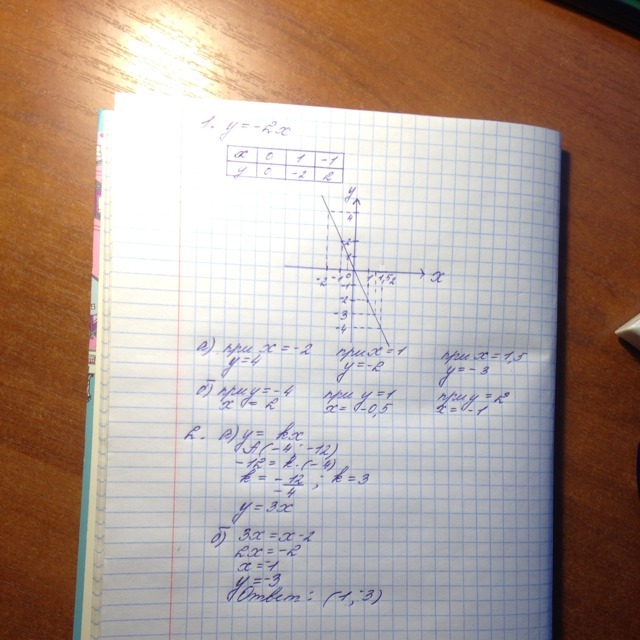 1. y = -2x
x 0 1 -1
y 0 -2 2
y
4
2
1
-2 -1 1 1,5 2 x
-1
-2
-3
-4
а) при x = -2 при x = 1 при x = 1,5
y = 4 y = -2 y = -3
б) при y = -4 при y = 1 при y = 2
x = 2 x = -0,5 x = -1
2. а) y = kx
A(-4; -12)
-12 = k·(-4)
k = -12/-4 ; k = 3
y = 3x
б) 3x = x-2
2x = -2
x = -1
y = -3
Ответ: (-1; -3)